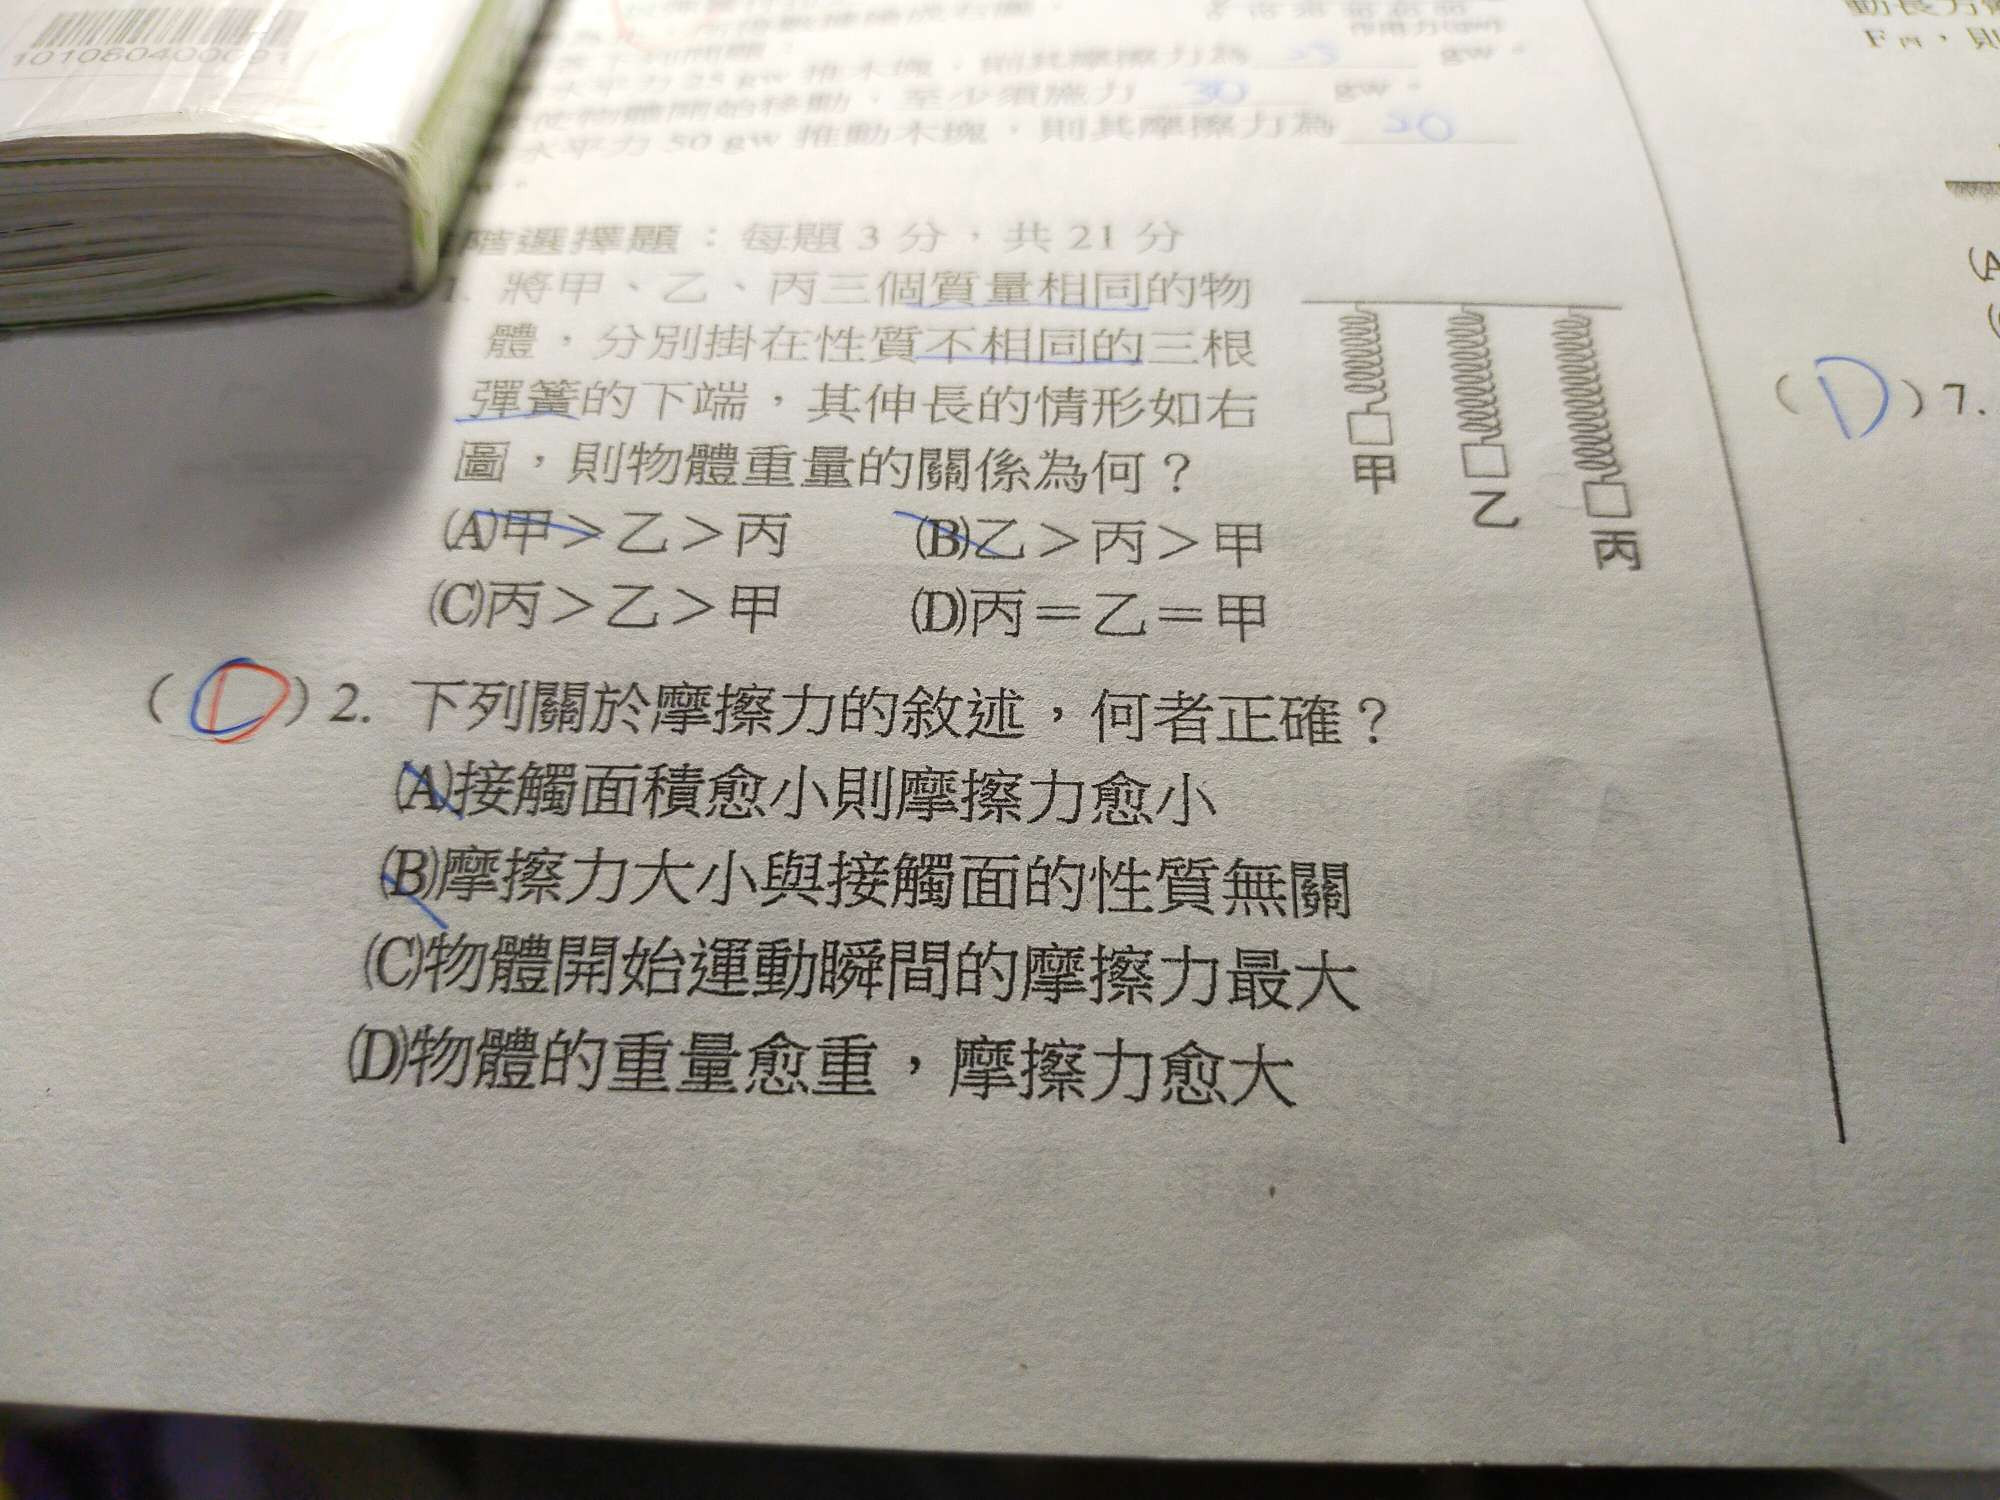 1010804000691
gw。
水平力 25 gw 推木塊，則其摩擦力為
使物體開始移動，至少須施力 30 gw。
水平力 50 gw 推動木塊，則其摩擦力為 20
階選擇題：每題 3 分，共 21 分
1. 將甲、乙、丙三個質量相同的物
體，分別掛在性質不相同的三根
彈簧的下端，其伸長的情形如右
圖，則物體重量的關係為何？
甲
乙
丙
(A)甲＞乙＞丙 (B)乙＞丙＞甲
(C)丙＞乙＞甲 (D)丙＝乙＝甲
( D ) 2. 下列關於摩擦力的敘述，何者正確？
(A)接觸面積愈小則摩擦力愈小
(B)摩擦力大小與接觸面的性質無關
(C)物體開始運動瞬間的摩擦力最大
(D)物體的重量愈重，摩擦力愈大
F丙，則
(A
( D ) 7.